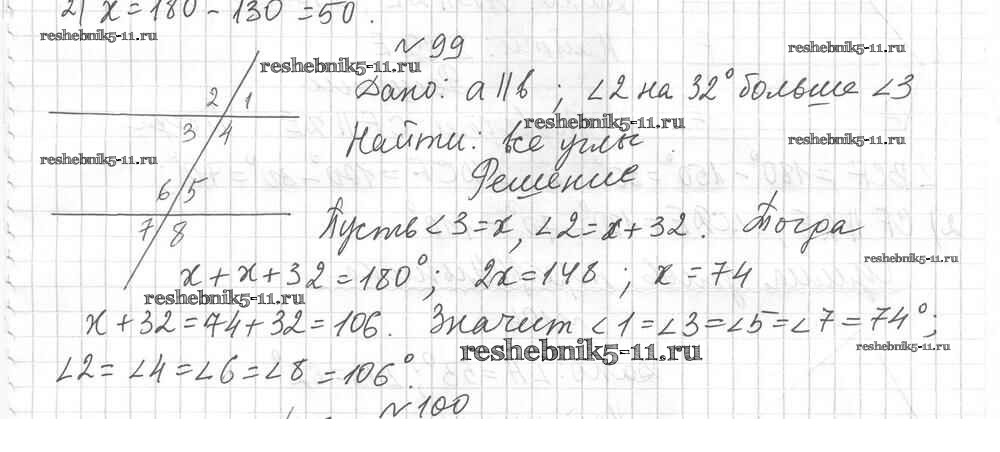 2) x = 180 - 130 = 50.
reshebnik5-11.ru
№ 99
reshebnik5-11.ru
reshebnik5-11.ru
Дано: a || b ; ∠2 на 32° больше ∠3
2 1
3 4
reshebnik5-11.ru
Найти: все углы
reshebnik5-11.ru
reshebnik5-11.ru
Решение
6 5
7 8
Пусть ∠3 = x, ∠2 = x + 32. Тогда
reshebnik5-11.ru
x + x + 32 = 180°; 2x = 148 ; x = 74
reshebnik5-11.ru
x + 32 = 74 + 32 = 106. Значит ∠1 = ∠3 = ∠5 = ∠7 = 74°;
reshebnik5-11.ru
reshebnik5-11.ru
∠2 = ∠4 = ∠6 = ∠8 = 106°.
№ 100